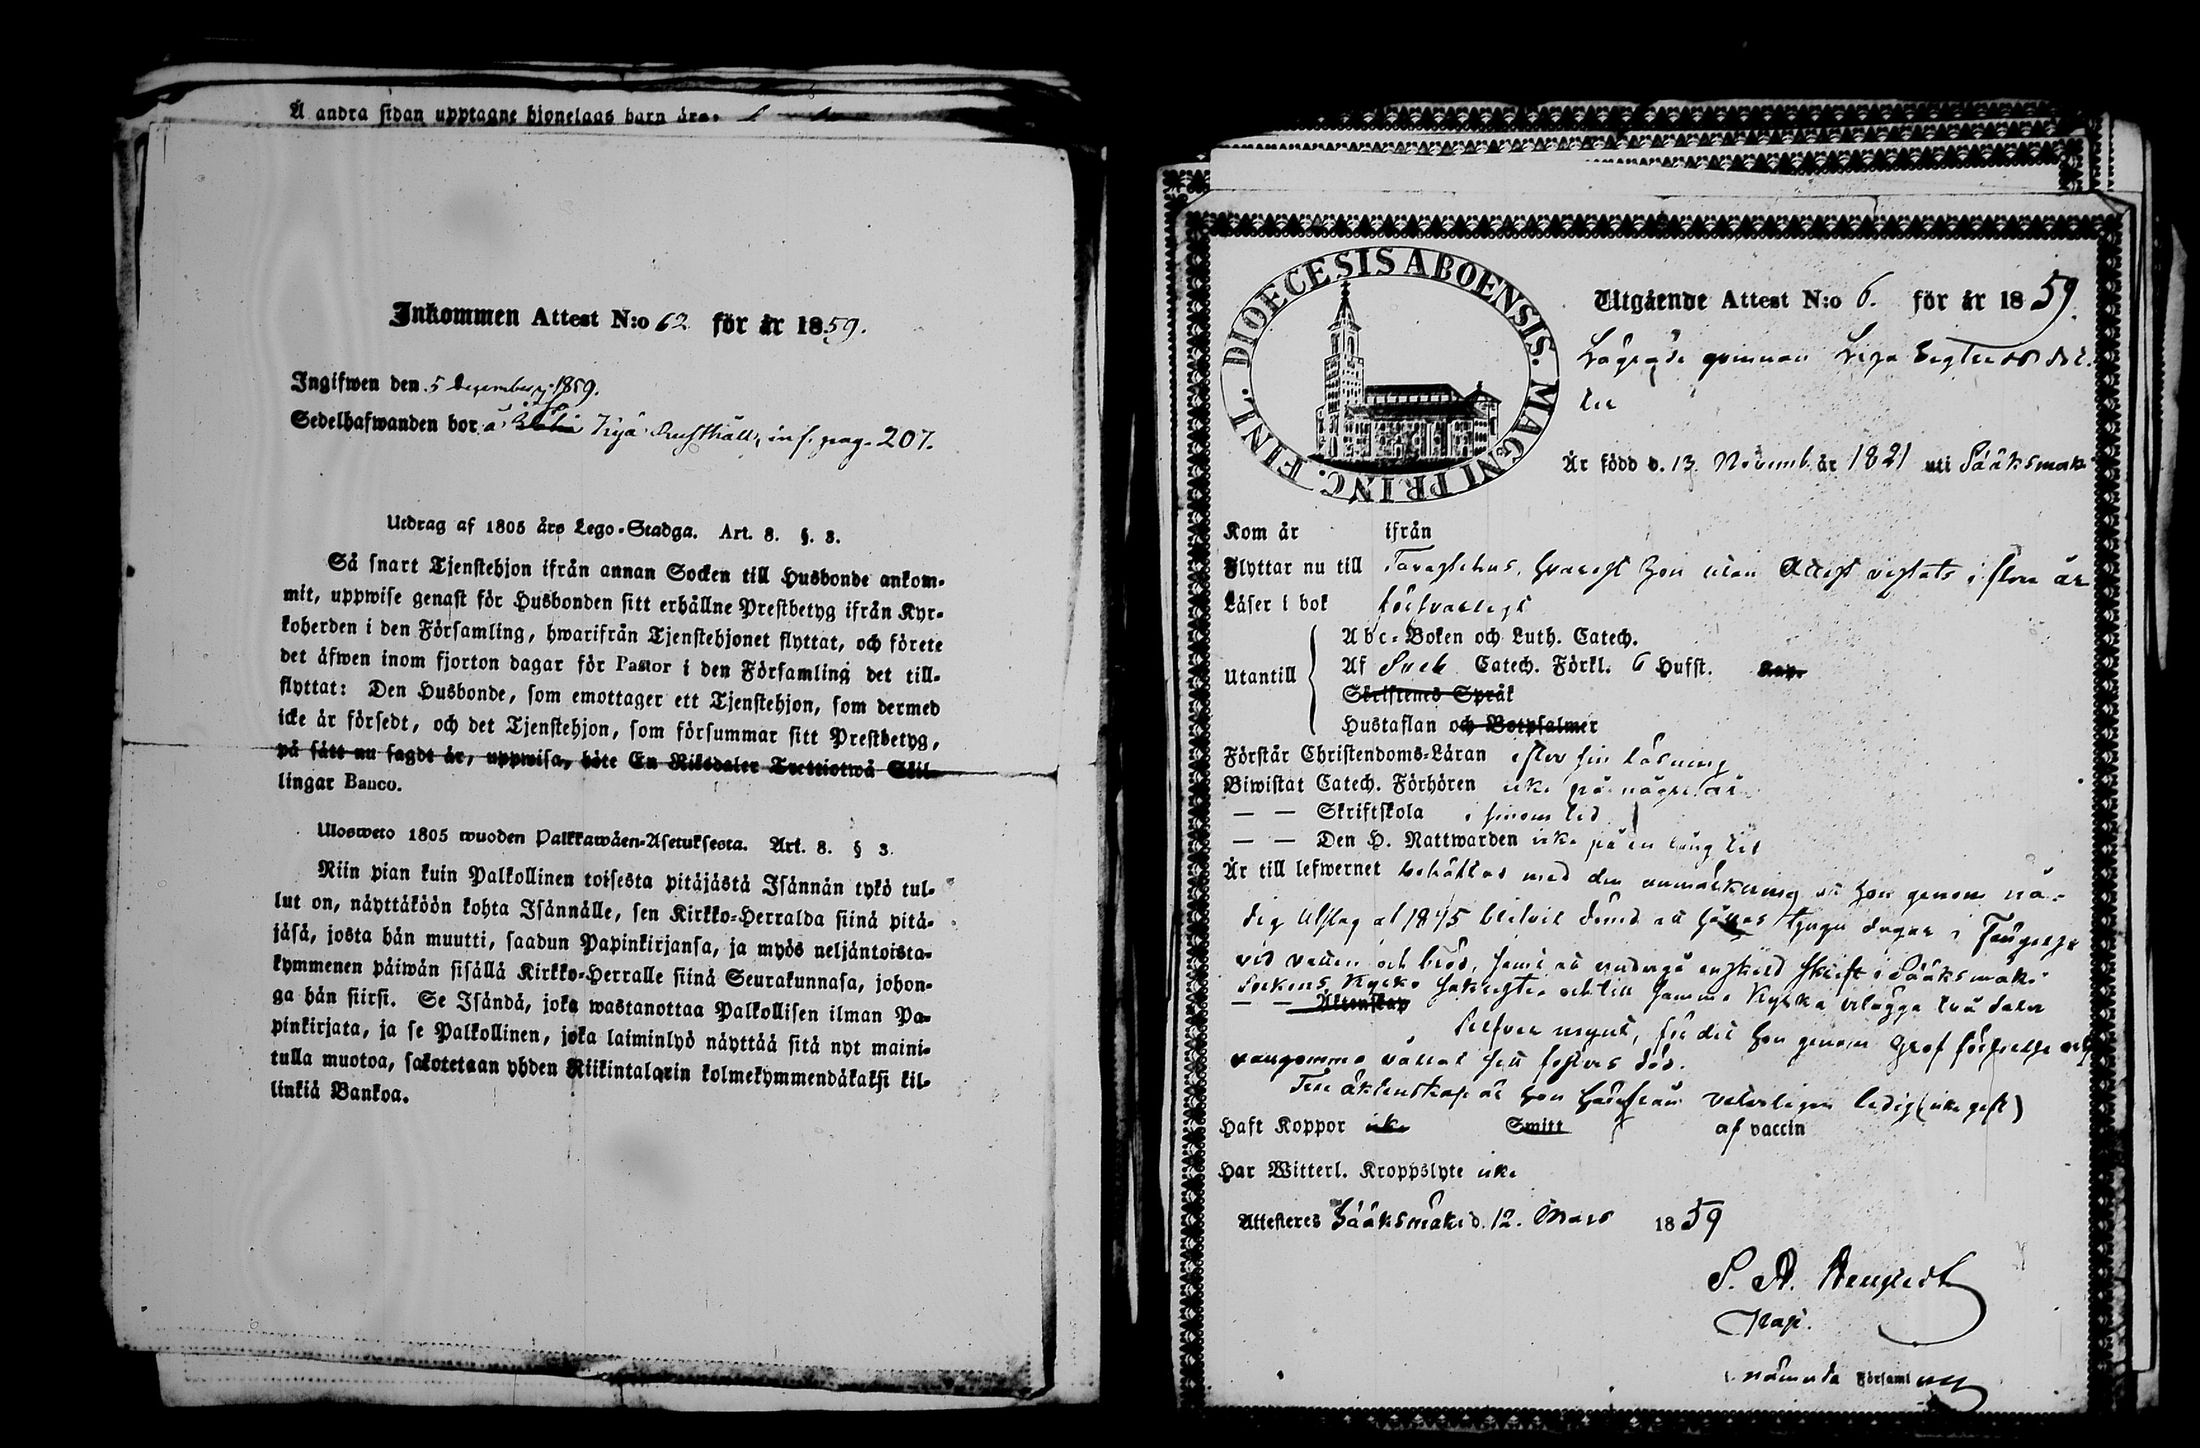 Å andra sidan upptagne hjonelags barn äro.
Inkommen Attest N:o 62 för år 1859.
Ingifwen den 5 December 1859.
Sedelhafwanden bor å Kijá Rusthåll, inf. pag. 207.
Utdrag af 1805 års Lego-Stadga. Art. 8. §. 3.
Så snart Tjenstehjon ifrån annan Socken till Husbonde ankom-
mit, uppwise genast för Husbonden sitt erhållne Prestbetyg ifrån Kyr-
koherden i den Församling, hwarifrån Tjenstehjonet flyttat, och förete
det äfwen inom fjorton dagar för Pastor i den Församling det till-
flyttat: Den Husbonde, som emottager ett Tjenstehjon, som dermed
icke är försedt, och det Tjenstehjon, som försummar sitt Prestbetyg,
på sätt nu sagdt är, uppwisa, böte En Riksdaler Trettiotwå Skil-
lingar Banco.
Ulosweto 1805 wuoden Palkkawäen-Asetuksesta. Art. 8. § 3.
Niin pian kuin Palkollinen toisesta pitäjästä Isännän tykö tul-
lut on, näyttäköön kohta Isännälle, sen Kirkko-Herralda siinä pitä-
jäsä, josta hän muutti, saadun Papinkirjansa, ja myös neljäntoista-
kymmenen päiwän sisällä Kirkko-Herralle siinä Seurakunnasa, johon-
ga hän siirsi. Se Isändä, joka wastanottaa Palkollisen ilman Pa-
pinkirjata, ja se Palkollinen, joka laiminlyö näyttää sitä nyt maini-
tulla muotoa, sakotetaan yhden Riikintalarin kolmekymmendäkaksi kil-
linkiä Bankoa.
DIOECESIS ABOENSIS. MAGNI PRINC. FINL.
Utgående Attest N:o 6. för år 1859.
Lägrade qvinnan Lisa
Är född d. 13 Novemb. år 1821 uti Sääksmäki
Kom år ifrån
Flyttar nu till Tavastehus, hvarest hon utan Attest vistats i flere år
Läser i bok försvarligt
Abc-Boken och Luth. Catech.
Utantill Af Sveb Catech. Förkl. 6 Hufst. Kap.
Skriftenes Språk
Hustaflan och Botpsalmer
Förstår Christendoms-Läran efter sin läsning
Biwistat Catech. Förhören icke på några år
— — Skriftskola i sinom tid
— — Den H. Nattwarden icke på en lång tid
Är till lefwernet behäftad med den anmärkning att hon genom nå-
dig Utslag af 1845 blifvit dömd att hållas tjugu dagar i Fängelse
vid vatten och bröd, samt att undergå enskild skrift i Sääksmäki
Sockens Kyrkos sakristia och till samma Kyrka erlägga två daler
— — Äktenskap
Silfver mynt, för det hon genom grof förseelse och
vangömmo vållat sitt fosters död.
Till äktenskap är hon härifrån veterligen ledig (icke gift)
Haft Koppor icke Smitt af vaccin
Har Witterl. Kroppslyte icke
Attesteres Sääksmäki d. 12. Mars 1859
Kap.
i nämnda Församl